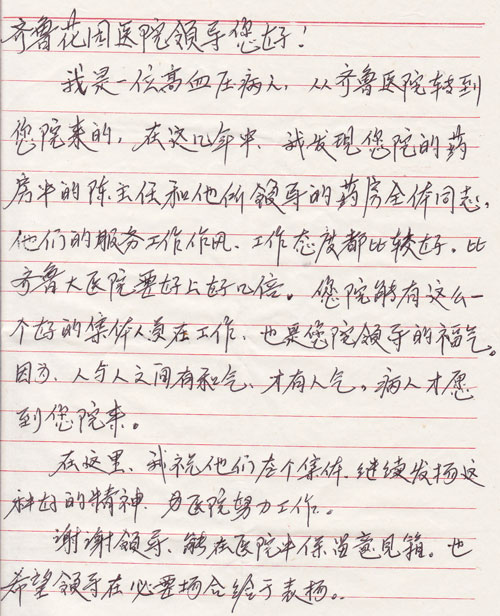 齐鲁花园医院领导您好！
我是一位高血压病人，从齐鲁医院转到
您院来的，在这几年中、我发现您院的药
房中的陈主任和他所领导的药房全体同志，
他们的服务工作作风、工作态度都比较好，比
齐鲁大医院要好上好几倍。您院能有这么一
个好的集体人员在工作、也是您院领导的福气。
因为、人与人之间有和气、才有人气。病人才愿
到您院来。
在这里、我祝他们这个集体、继续发扬这
种好的精神、为医院努力工作。
谢谢领导、能在医院中保留意见箱。也
希望领导在必要场合给于表扬。